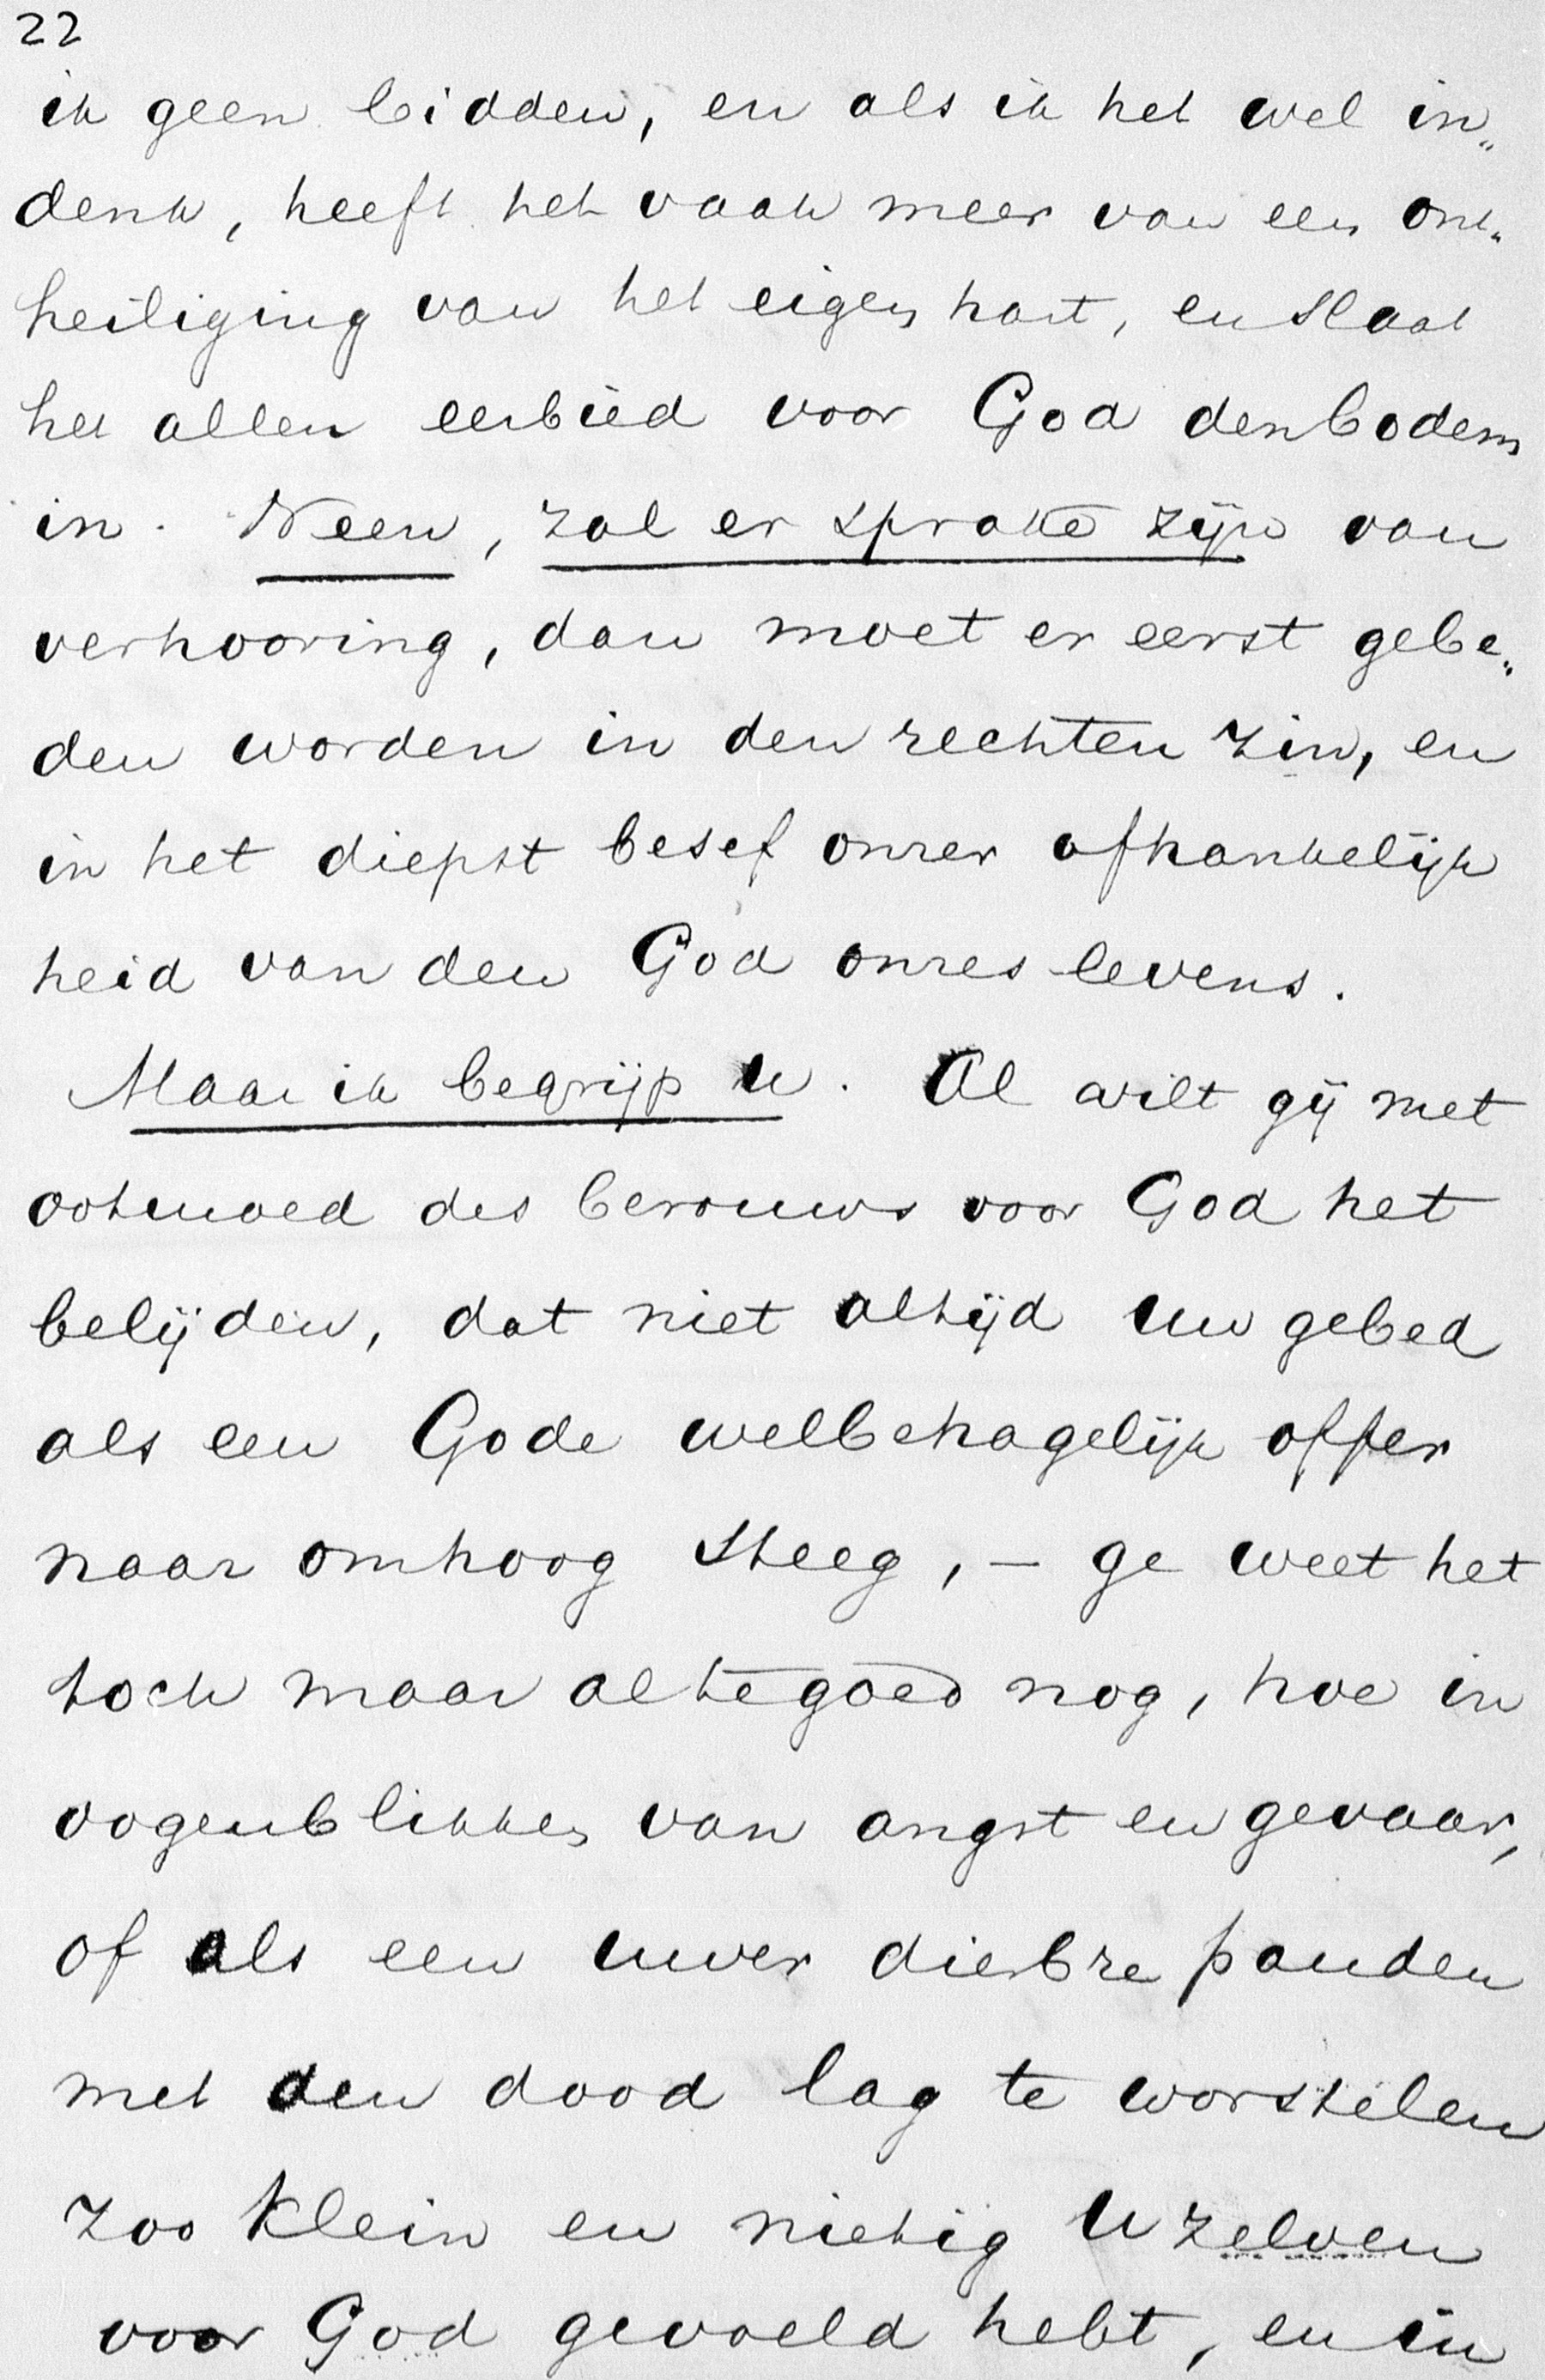 22
ik geen bidden, en als ik het wel in„
denk, heeft het vaak meer van een ont„
heiliging van het eigen hart, en slaat
het allen eerbied voor God den bodem
in. Neen, zal er sprake zijn van
verhooring, dan moet er eerst gebe„
den worden in den rechten zin, en
in het diepst besef onzer afhankelijk
heid van den God onzes levens.
Maar ik begrijp u. Al wilt gij met
ootmoed des berouws voor God het
belijden, dat niet altijd uw gebed
als een Gode welbehagelijk offer
naar omhoog steeg, – ge weet het
toch maar al te goed nog, hoe in
oogenblikken van angst en gevaar,
of als een uwer dierbre panden
met den dood lag te worstelen
zoo klein en nietig U zelven
voor God gevoeld hebt, en in